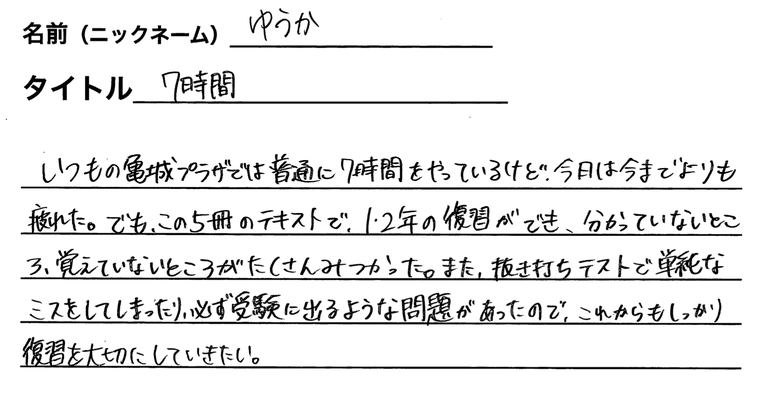 名前（ニックネーム） ゆうか
タイトル 7時間
いつもの亀城プラザでは普通に7時間をやっているけど、今日は今までよりも
疲れた。でも、この5冊のテキストで、1・2年の復習ができ、分かっていないとこ
ろ、覚えていないところがたくさんみつかった。また、抜き打ちテストで単純な
ミスをしてしまったり、必ず受験に出るような問題があったので、これからもしっかり
復習を大切にしていきたい。